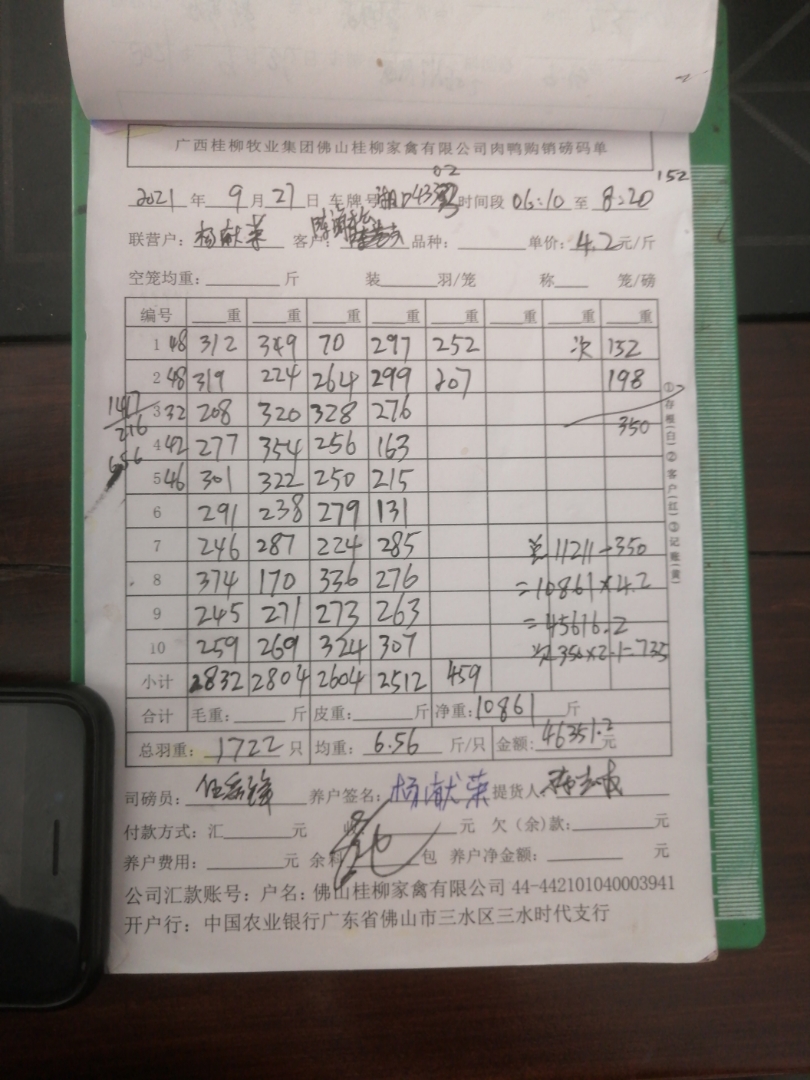 广西桂柳牧业集团佛山桂柳家禽有限公司肉鸭购销磅码单
02 152
2021年9月27日 车牌号 时间段06:10至8:20
联营户:杨献荣 客户: 品种: 单价:4.2元/斤
空笼均重: 斤 装 羽/笼 称 笼/磅
编号 重 重 重 重 重 重 重 重
1 48 312 349 70 297 252 次 152
2 48 319 224 264 299 207 198
1417 3 32 208 320 328 276 350
216 4 42 277 354 256 163
656 5 46 301 322 250 215
6 291 238 279 131
7 246 287 224 285 总11211-350
8 374 170 336 276 =10861×4.2
9 245 271 273 263 =45616.2
10 259 269 324 307 次350×2.1=735
小计 2832 2804 2604 2512 459
合计 毛重: 斤 皮重: 斤 净重:10861斤
总羽重:1722只 均重:6.56斤/只 金额:46351.2元
司磅员: 养户签名:杨献荣 提货人
付款方式:汇 元 元 欠(余)款: 元
养户费用: 元 余料 包 养户净金额: 元
公司汇款账号:户名:佛山桂柳家禽有限公司 44-442101040003941
开户行:中国农业银行广东省佛山市三水区三水时代支行
①存根(白)②客户(红)③记账(黄)